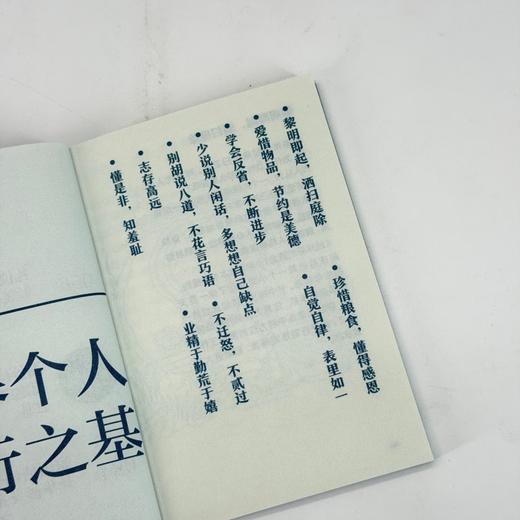 黎明即起，洒扫庭除
珍惜粮食，懂得感恩
爱惜物品，节约是美德
自觉自律，表里如一
学会反省，不断进步
少说别人闲话，多想想自己缺点
不迁怒，不贰过
别胡说八道，不花言巧语
业精于勤荒于嬉
志存高远
懂是非，知羞耻
个人
行之基